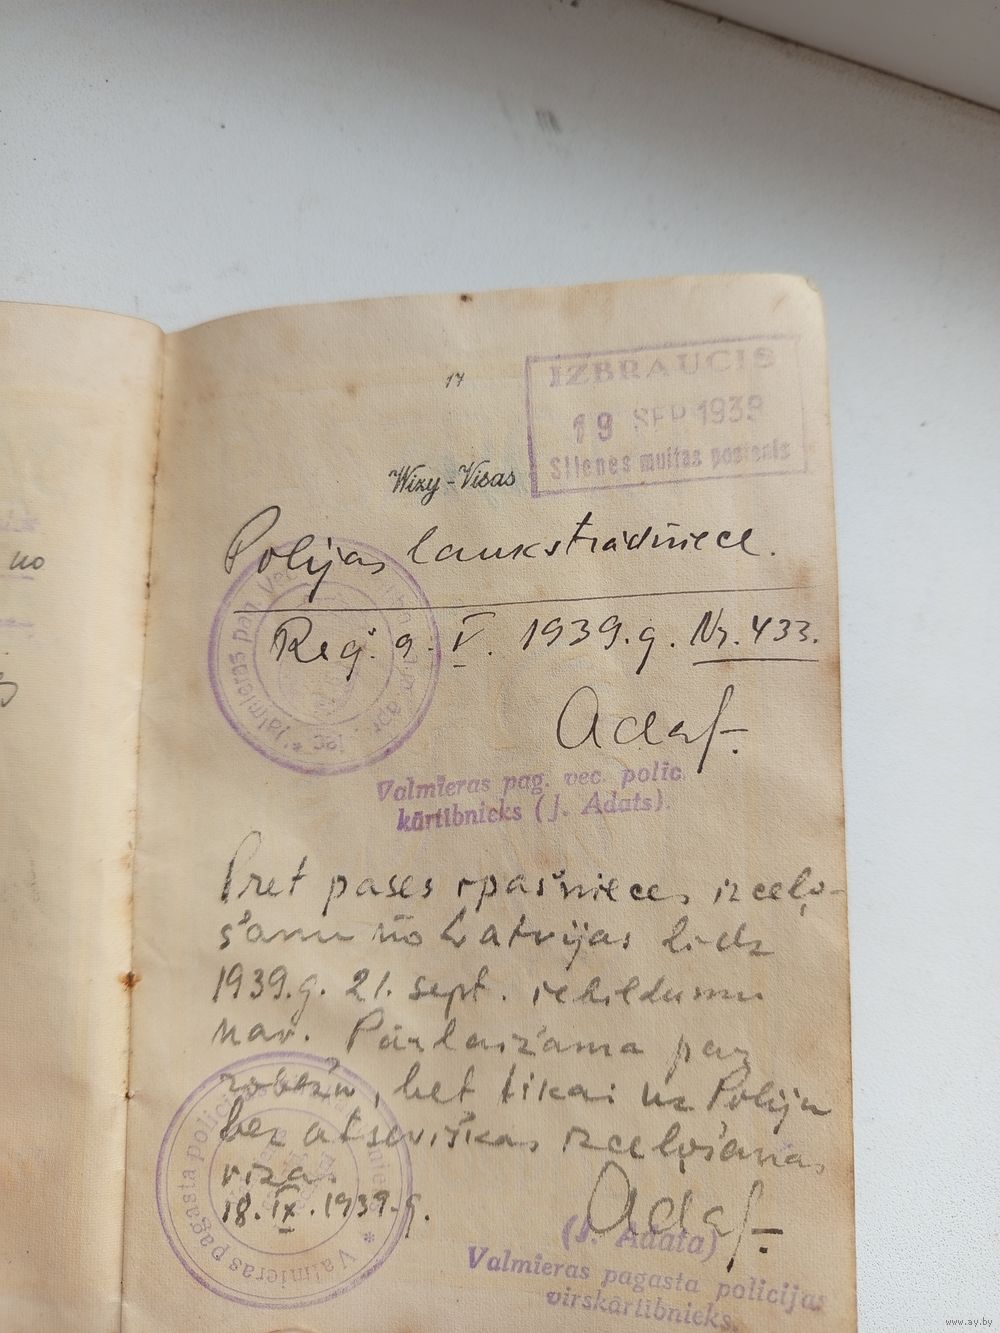 17
IZBRAUCIS
19 SEP 1939
Silenes muitas postenis
Wizy-Visas
Polijas laukstrādniece.
Reģ. 9. V. 1939.g. Nr. 433.
Adat.
Valmieras pag. vec. polic.
kārtībnieks (J. Adats).
Pret pases īpašnieces izceļo-
šanu no Latvijas līdz
1939.g. 21. sept. iebildumu
nav. Pārlaižama par
robežu, bet tikai uz Poliju
bez atsevišķas izceļošanas
vīzas
18. IX. 1939.g.
Adat.
(J. Adata)
Valmieras pagasta policijas
virskārtībnieks.
no
www.ay.by